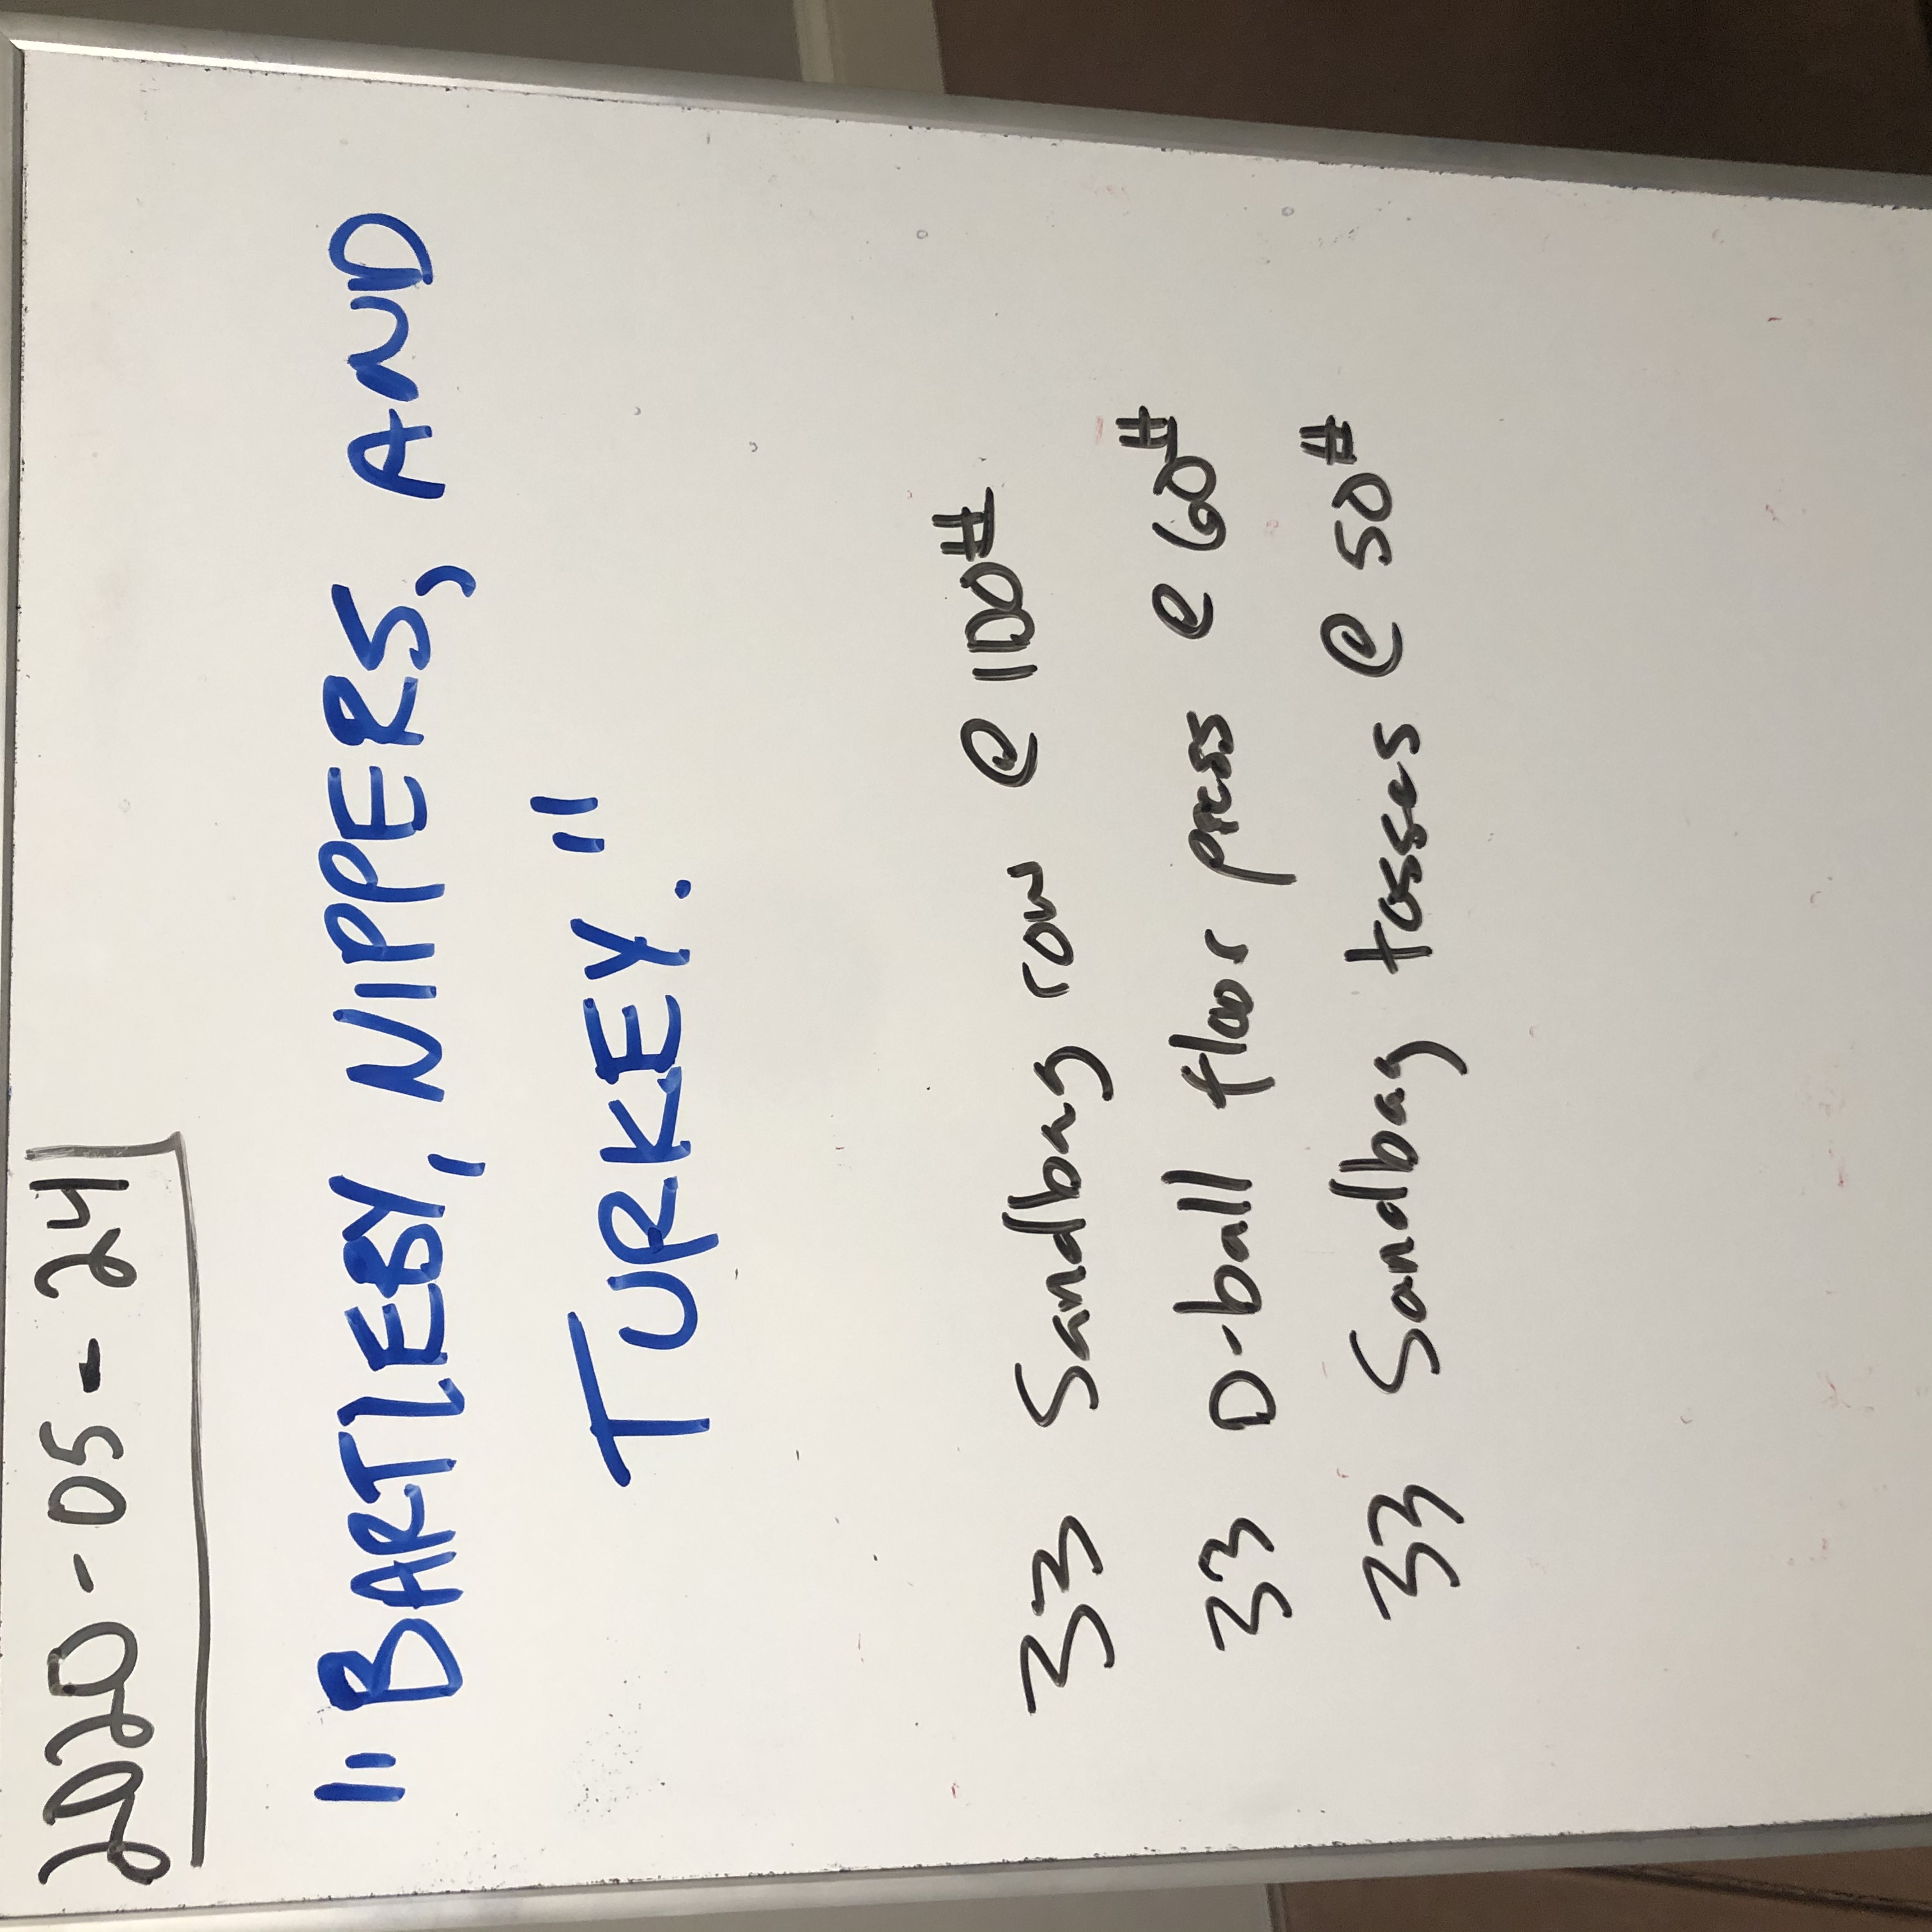 2020-05-24
"BARTLEBY, NIPPERS, AND
TURKEY."
33 Sandbag row @ 100#
33 D-ball floor press @ 60#
33 Sandbag tosses @ 50#